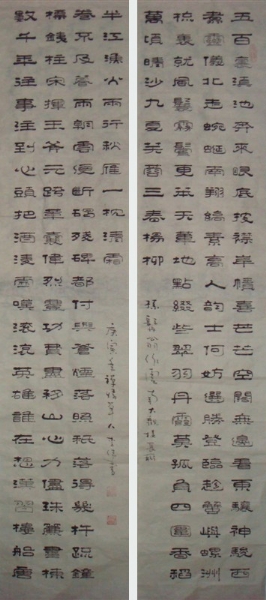 五百里滇池奔來眼底披襟岸幘喜茫茫空闊無邊看東驤神駿西
翥靈儀北走蜿蜒南翔縞素高人韻士何妨選勝登臨趁蟹嶼螺洲
梳裹就風鬟霧鬢更蘋天葦地點綴些翠羽丹霞莫孤負四圍香稻
萬頃晴沙九夏芙蓉三春楊柳
數千年往事注到心頭把酒凌虛嘆滾滾英雄誰在想漢習樓船唐
標鐵柱宋揮玉斧元跨革囊偉烈豐功費盡移山心力盡珠簾畫棟
卷不及暮雨朝雲便斷碣殘碑都付與蒼煙落照祇贏得幾杵疏鐘
半江漁火兩行秋雁一枕清霜